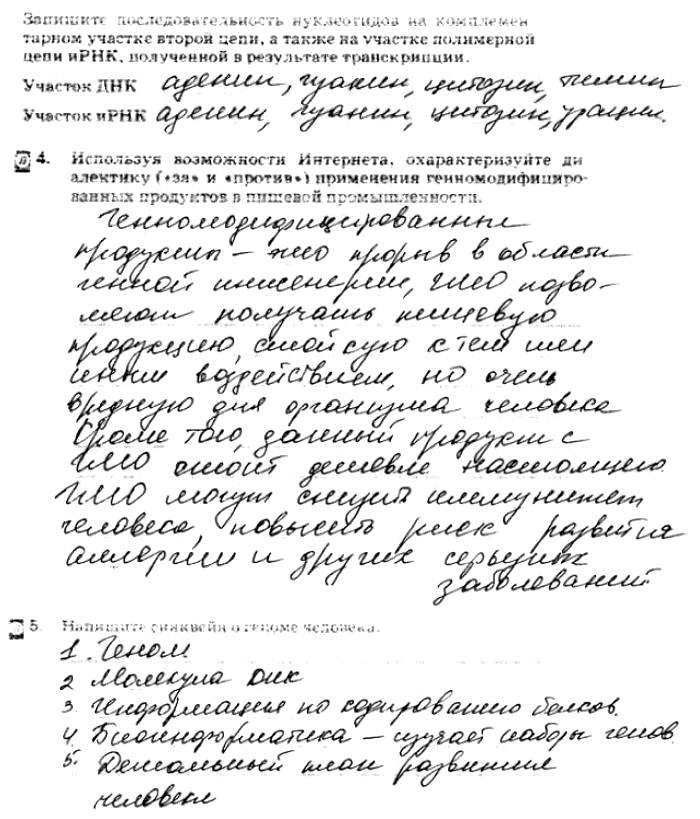 Запишите последовательность нуклеотидов на комплемен
тарном участке второй цепи, а также на участке полимерной
цепи иРНК, полученной в результате транскрипции.
Участок ДНК аденин, гуанин, цитозин, тимин
Участок иРНК аденин, гуанин, цитозин, урацил.
4. Используя возможности Интернета, охарактеризуйте ди
алектику («за» и «против») применения генномодифициро-
ванных продуктов в пищевой промышленности.
Генномодифицированные
продукты – это прорыв в области
генной инженерии, ГМО позво-
ляют получать пищевую
продукцию, стойкую к тем или
иным воздействием, но очень
вредную для организма человека
Кроме того, данный продукт с
ГМО стоит дешевле настоящего.
ГМО могут снизить иммунитет
человека, повысить риск развития
аллергии и других серьезных
заболеваний
5. Напишите синквейн о геноме человека.
1. Геном
2 Молекула ДНК
3. Информация по кодированию белков.
4. Биоинформатика – изучает наборы генов
5. Детальный план развития
человека